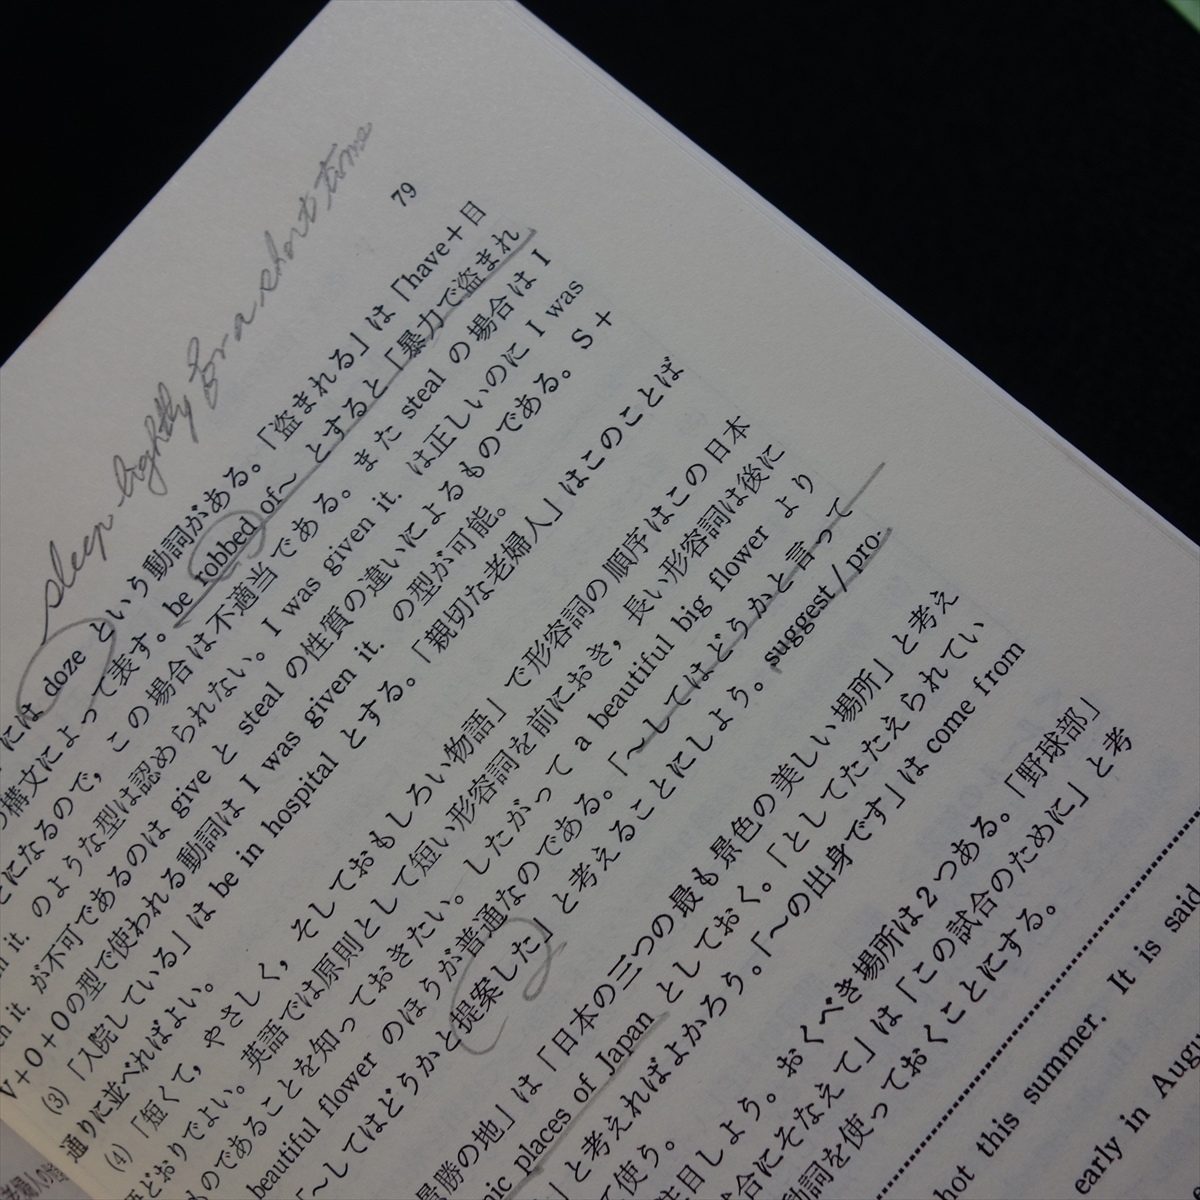 sleep lightly for a short time
79
には doze という動詞がある。「盗まれる」は「have+目
構文によって表す。be robbed of~ とすると「暴力で盗まれ
になるので，この場合は不適当である。また steal の場合は I
it. のような型は認められない。I was given it. は正しいのに I was
it. が不可であるのは give と steal の性質の違いによるものである。S+
V+O+Oの型で使われる動詞は I was given it. の型が可能。
(3) 「入院している」は be in hospital とする。「親切な老婦人」はこのことば
通りに並べればよい。
(4) 「短くて，やさしく，そしておもしろい物語」で形容詞の順序はこの日本
語どおりでよい。英語では原則として短い形容詞を前におき，長い形容詞は後に
ものであることを知っておきたい。したがって a beautiful big flower より
beautiful flower のほうが普通なのである。「~してはどうかと言って
「~してはどうかと提案した」と考えることにしよう。suggest / pro-
景勝の地」は「日本の三つの最も景色の美しい場所」と考え
places of Japan としておく。「としてたたえられてい
」と考えればよかろう。「~の出身です」は come from
て使う。
注目しよう。おくべき場所は2つある。「野球部」
試合にそなえて」は「この試合のために」と考
動詞を使っておくことにする。
hot this summer. It is said
early in Augu